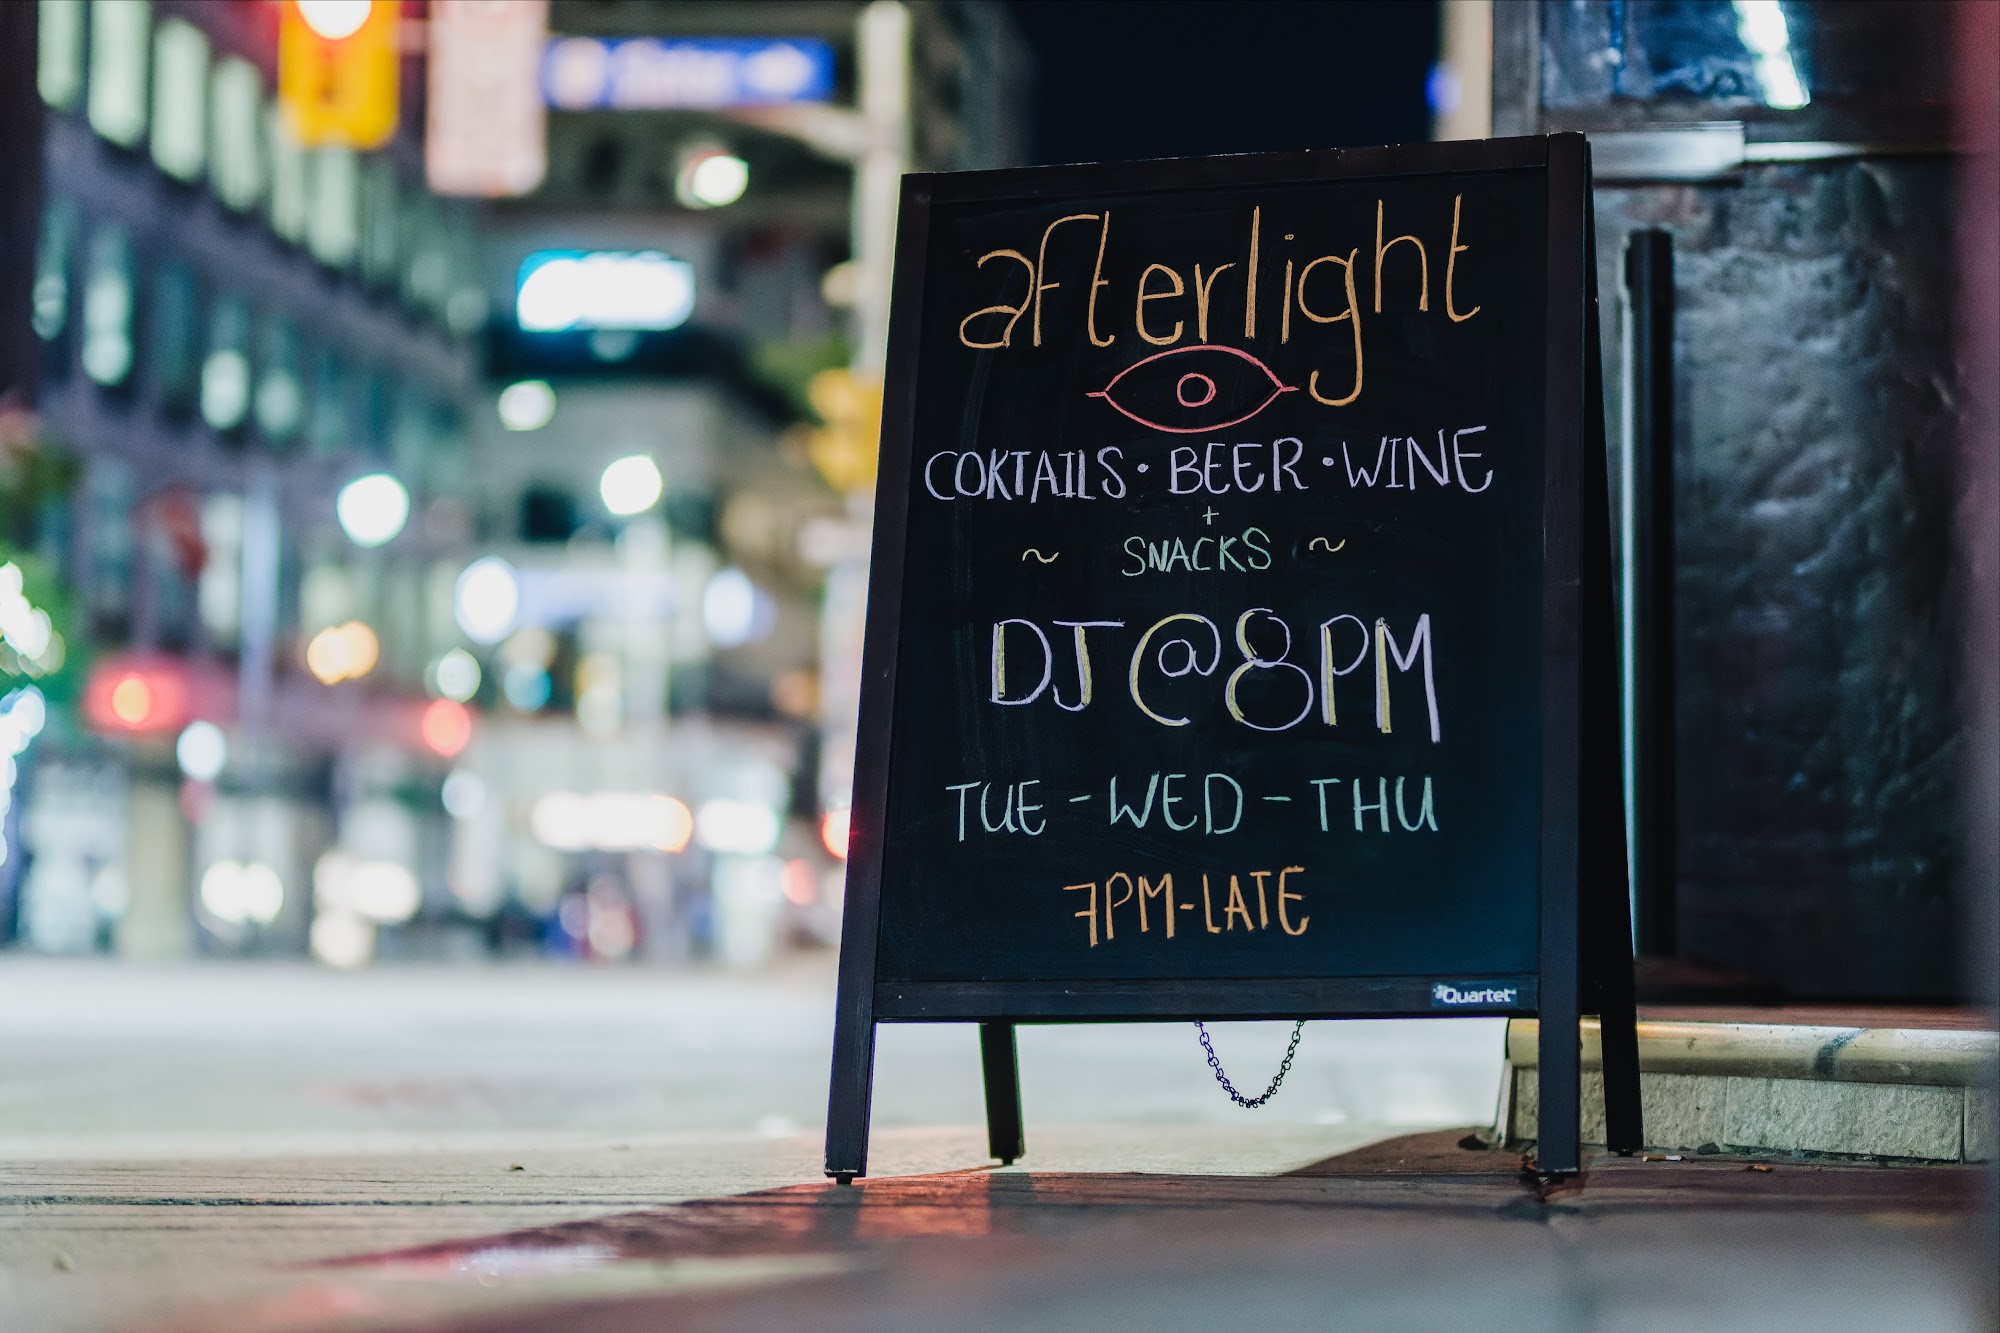 afterlight
COKTAILS • BEER • WINE
+
~ SNACKS ~
DJ @ 8PM
TUE - WED - THU
7PM - LATE
Quartet